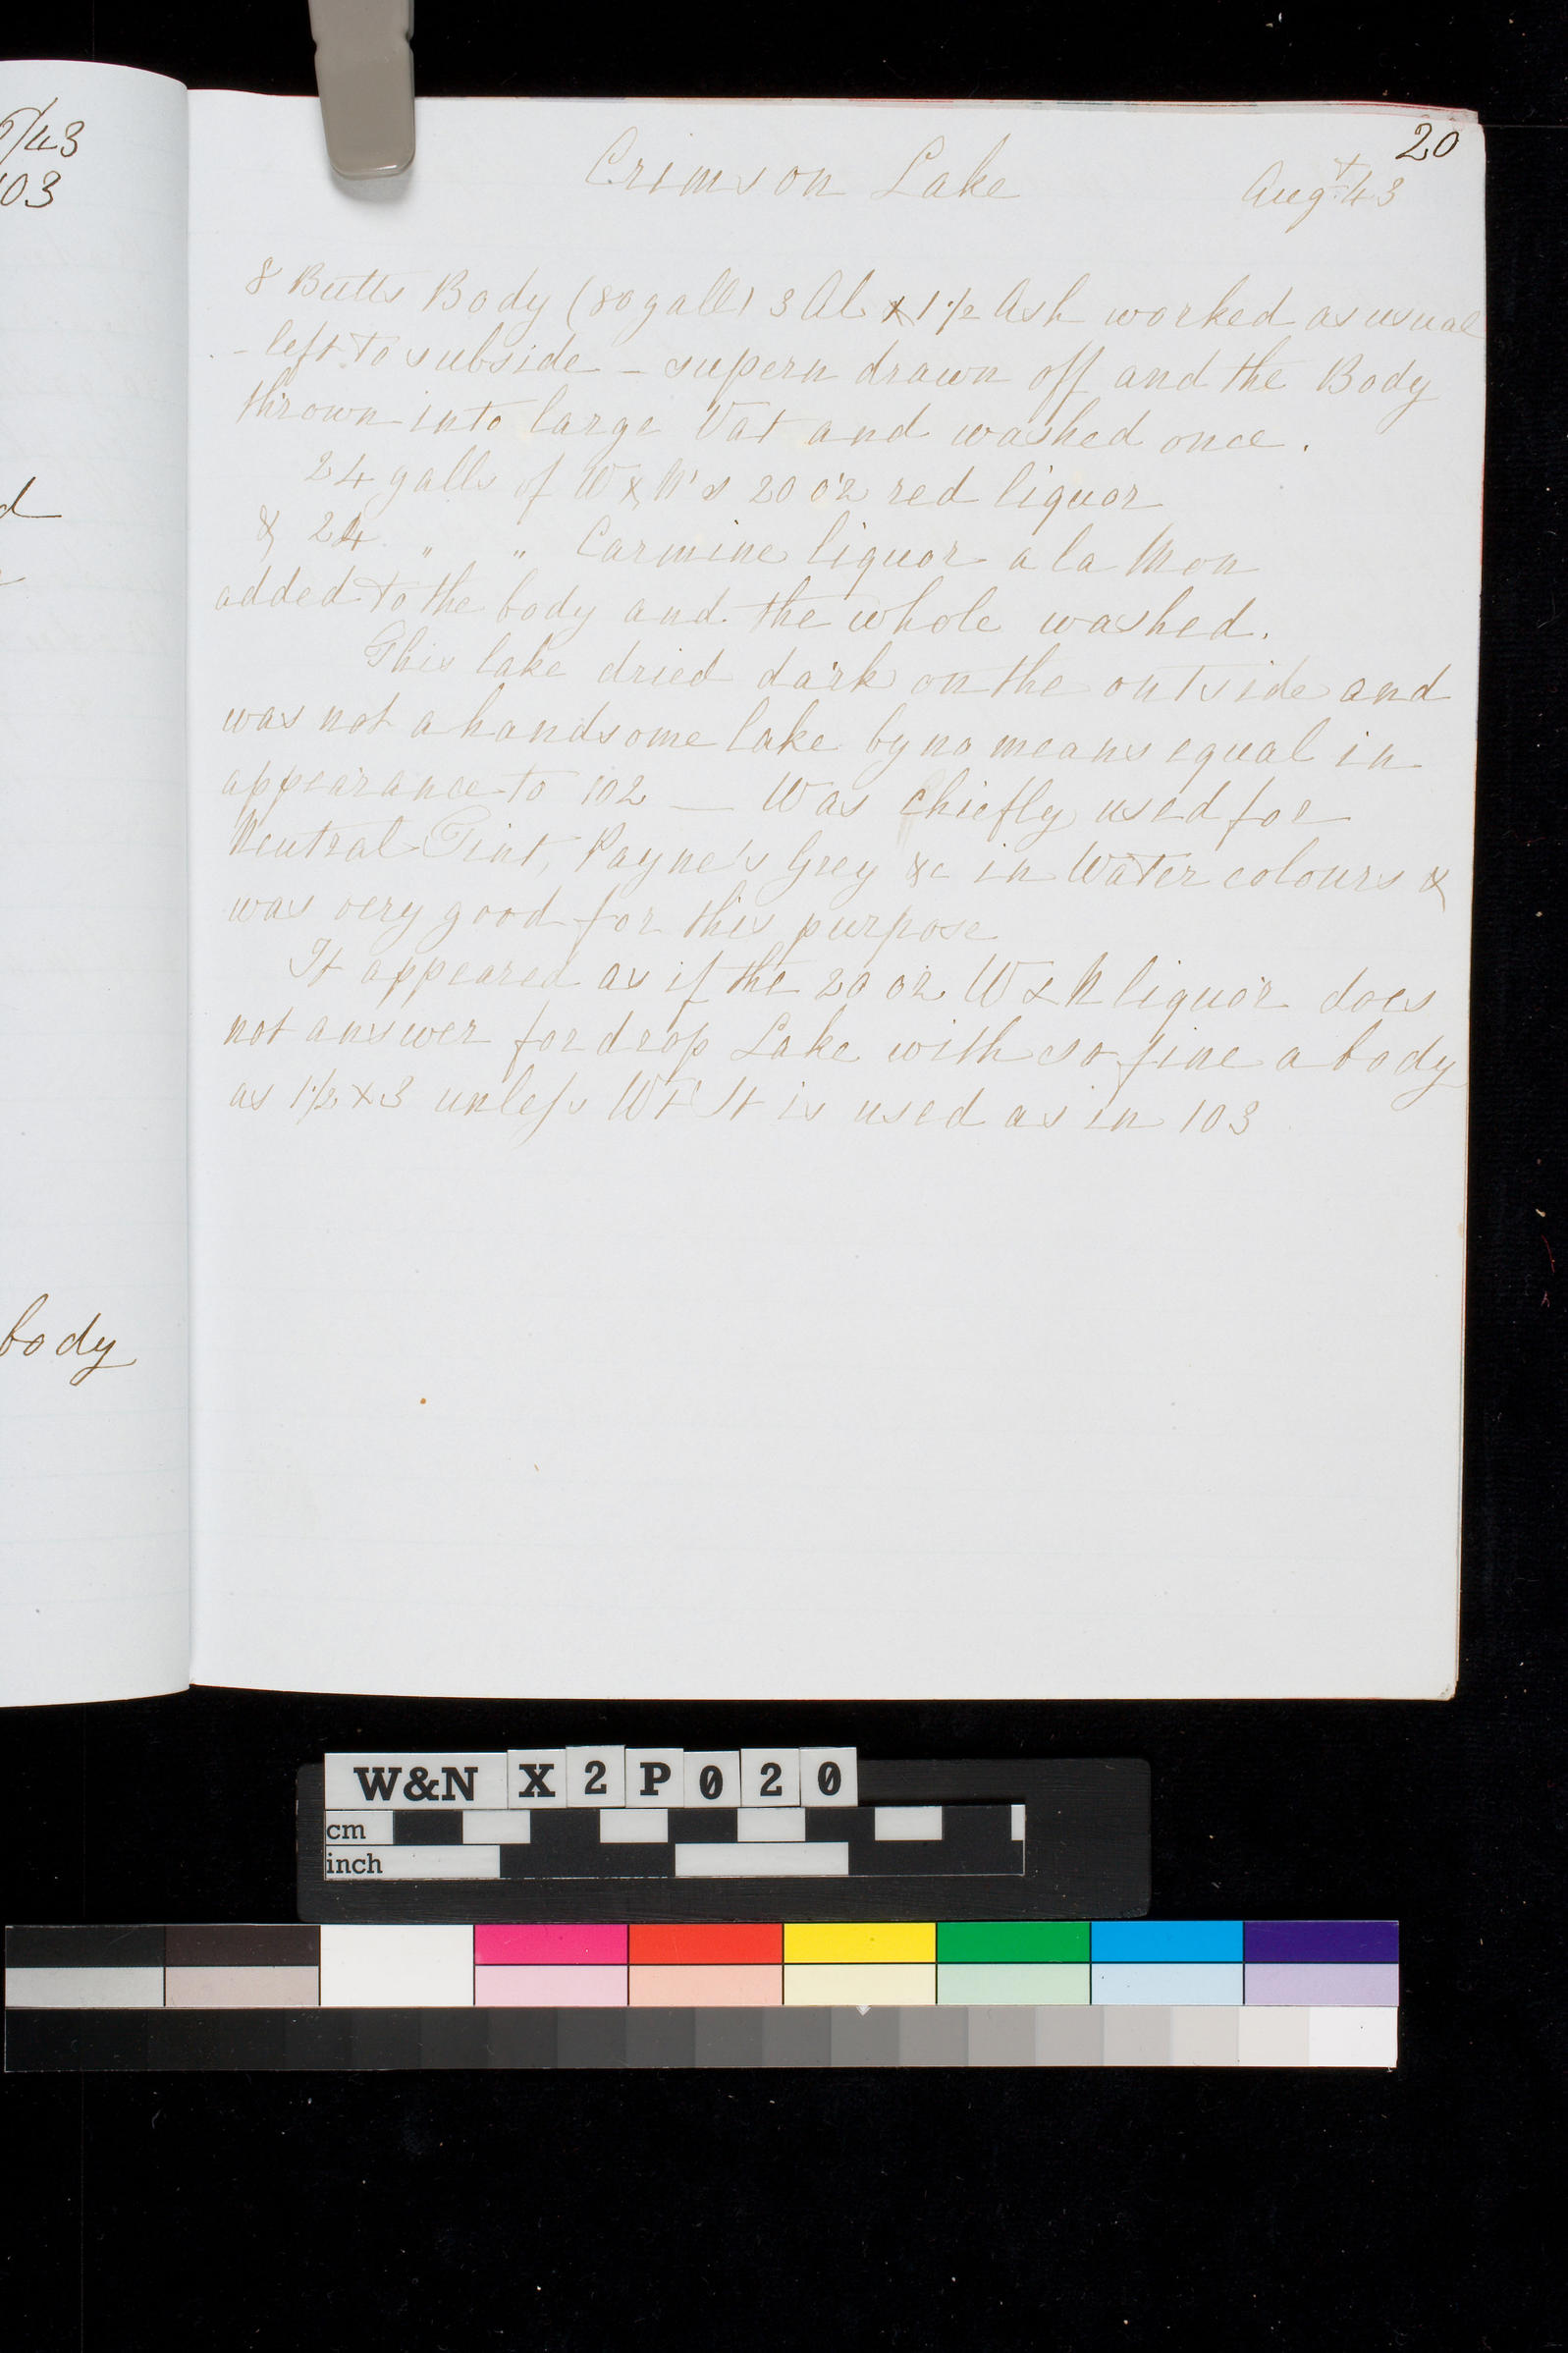 2/43
103
d
body
20
Crimson Lake
Augt 43
8 Butts Body (80 gall) 3 Al & 1 1/2 Ash worked as usual
- left to subside - supern drawn off and the Body
thrown into large Vat and washed once.
24 galls of W & N's 20 oz red liquor
& 24 " " Carmine liquor a la Mon
added to the body and the whole washed.
This lake dried dark on the outside and
was not a handsome lake by no means equal in
appearance to 102 — Was chiefly used for
Neutral Tint, Payne's Grey &c in Water colours &
was very good for this purpose
It appeared as if the 20 oz W & N liquor does
not answer for drop Lake with so fine a body
as 1 1/2 & 3 unless Wt St is used as in 103
W&N X2P020
cm
inch